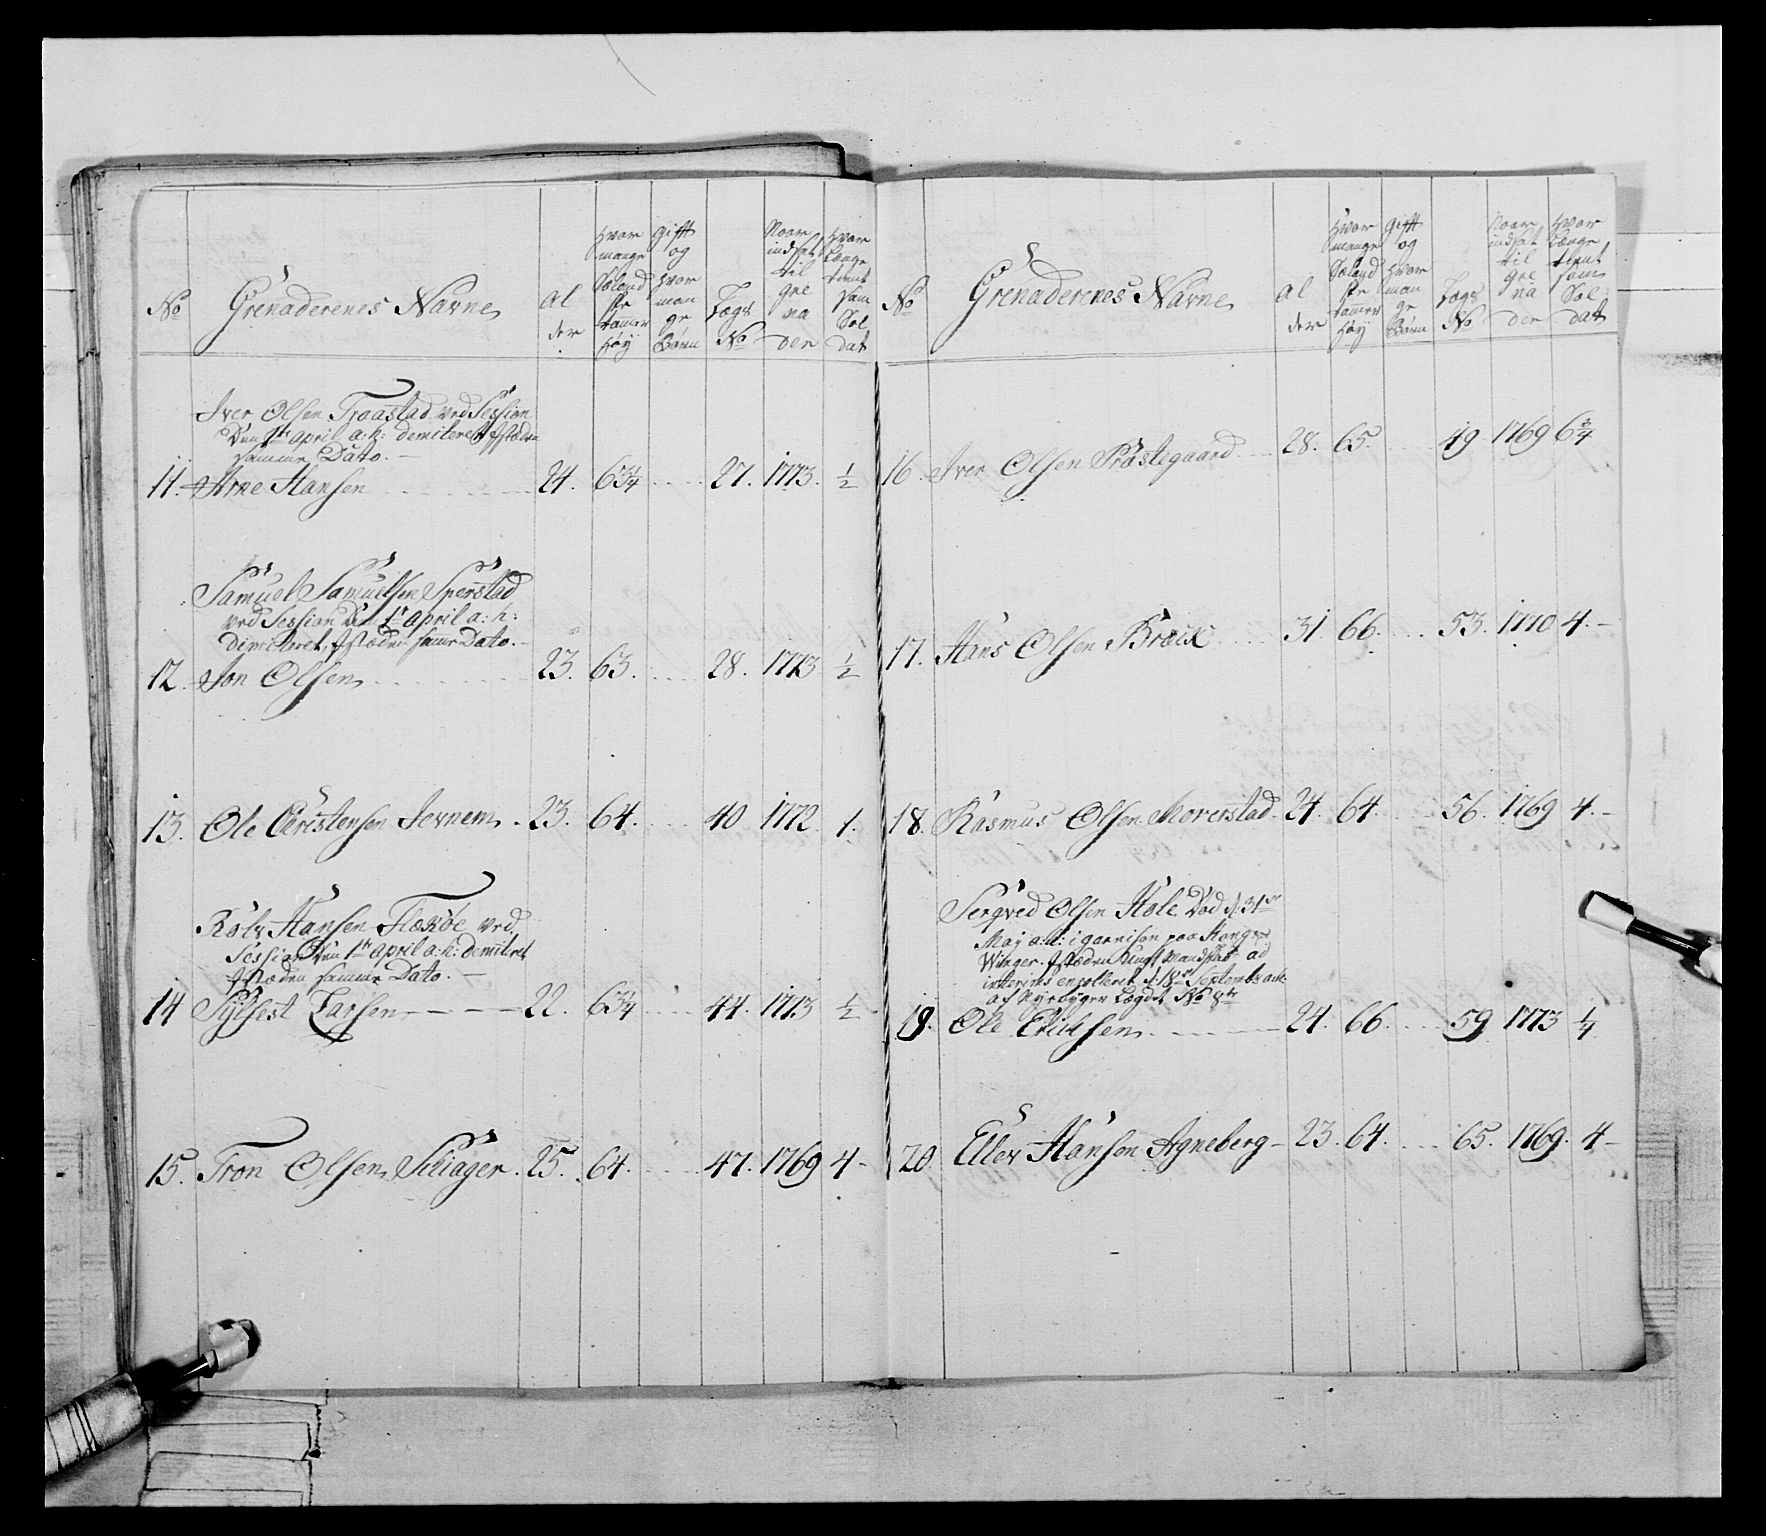 No
Grenaderenes Navne
Al
der
Hvor
mange
Sælend
ske
tomer
høy
Gift
og
hvor
man
ge
Børn
Lægs
No
Naar
indsat
til
gre
na
der
Hvor
længe
tient
som
Sol
dat
Iver Olsen Traastad ved Session
Den 1te april a: h: demiteret Istæden
samme Dato.
11. Arne Hansen 24. 63¼ 27. 1773. ½
Samuel Samuelsen Sperstad
ved Session Den 1te april a: h:
Dimiteret, Istæden samme Dato.
12. Jon Olsen 23. 63. 28. 1773 ½
13. Ole Christensen Jevnem 23. 64. 40 1772 1.
Rolv Hansen Flaskøe ved
Session Den 1te april a: h: demiteret
Istæden samme Dato.
14 Sylfest Larsen 22. 63¼ 44. 1773 ½
15. Tron Olsen Skiager 25. 64. 47. 1769 4
No
Grenaderenes Navne
Al
der
Hvor
mange
Sælend
ske
tomer
høy
Gift
og
hvor
man
ge
Børn
Lægs
No
Naar
indsat
til
gre
na
der
Hvor
længe
tient
som
Sol
dat
16. Iver Olsen Præstegaard 28. 65. 49 1769 6¾
17. Hans Olsen Bræck 31 66. 53. 1770 4.
18. Rasmus Olsen Morerstad 24. 64. 56. 1769 4.
Sergved Olsen Hole Død d: 31te
May a: h: i garnison paa Kongs
Winger. Istæden Ungt Mandskab ad
interims enrolleret d: 18de Septembr
af Lægdet No 8te
19. Ole Ericksen 24. 66. 59 1773 ¼
20. Ellev Hansen Agneberg 23. 64. 65. 1769. 4